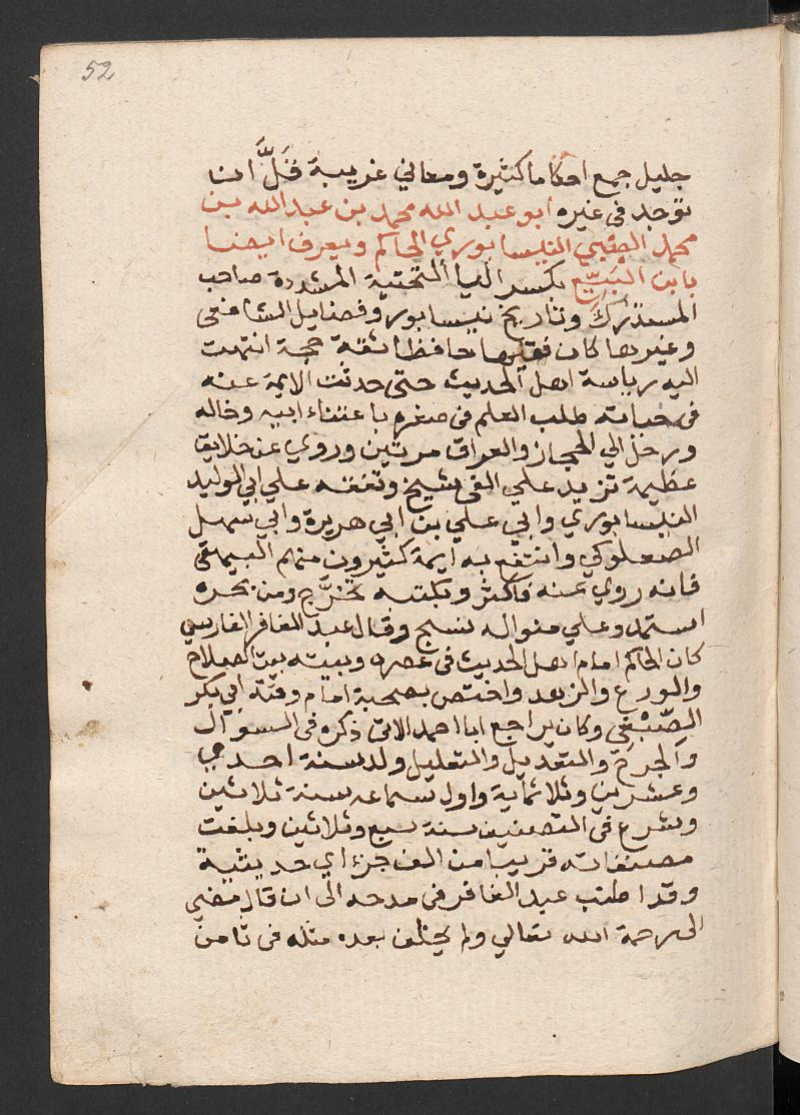 52
جليل جمع احكاما كثيرة ومعاني غريبة قَلَّ ان
توجد فى غيره ابو عبد الله محمد بن عبد الله بن
محمد الضبي النيسابوري الحاكم ويعرف ايضا
بابن البَيّع بكسر اليا التحتية المشددة صاحب
المستدرك وتاريخ نيسابور وفضايل الشافعى
وغيرها كان فقيها حافظا ثقة حجة انتهت
اليه رياسة اهل الحديث حتى حدثت الايمة عنه
فى حياته طلب العلم فى صغره باعتناء ابيه وخاله
ورحل الي الحجاز والعراق مرتين وروي عن خلايق
عظيمة تزيد علي الفى شيخ وتفقه علي ابي الوليد
النيسابوري وابي علي بن ابي هريرة وابي سهل
الصعلوكي وانتفع به ايمة كثيرون منهم البيهقى
فانه روي عنه فاكثر وبكتبه تخرَّج ومن بحره
استمد وعلي منواله نسج وقال عبد الغافر الفارسي
كان الحاكم امام اهل الحديث فى عصره وبيته بيت الصلاح
والورع والزهد واختص بصحبة امام وقته ابي بكر
الصّبْغي وكان يراجع ابا احمد الاتى ذكره فى السوآل
والجرح والتعديل والتعليل ولد سنة احدي
وعشرين وثلاثماية واول سماعه سنة ثلاثين
وشرع فى التصنيف سنة سبع وثلاثين وبلغت
مصنفاته قريبا من الف جزء اي حديثية
وقد اطنب عبد الغافر فى مدحه الى ان قال مضي
الى رحمة الله تعالي ولم يخلف بعده مثله فى ثامن